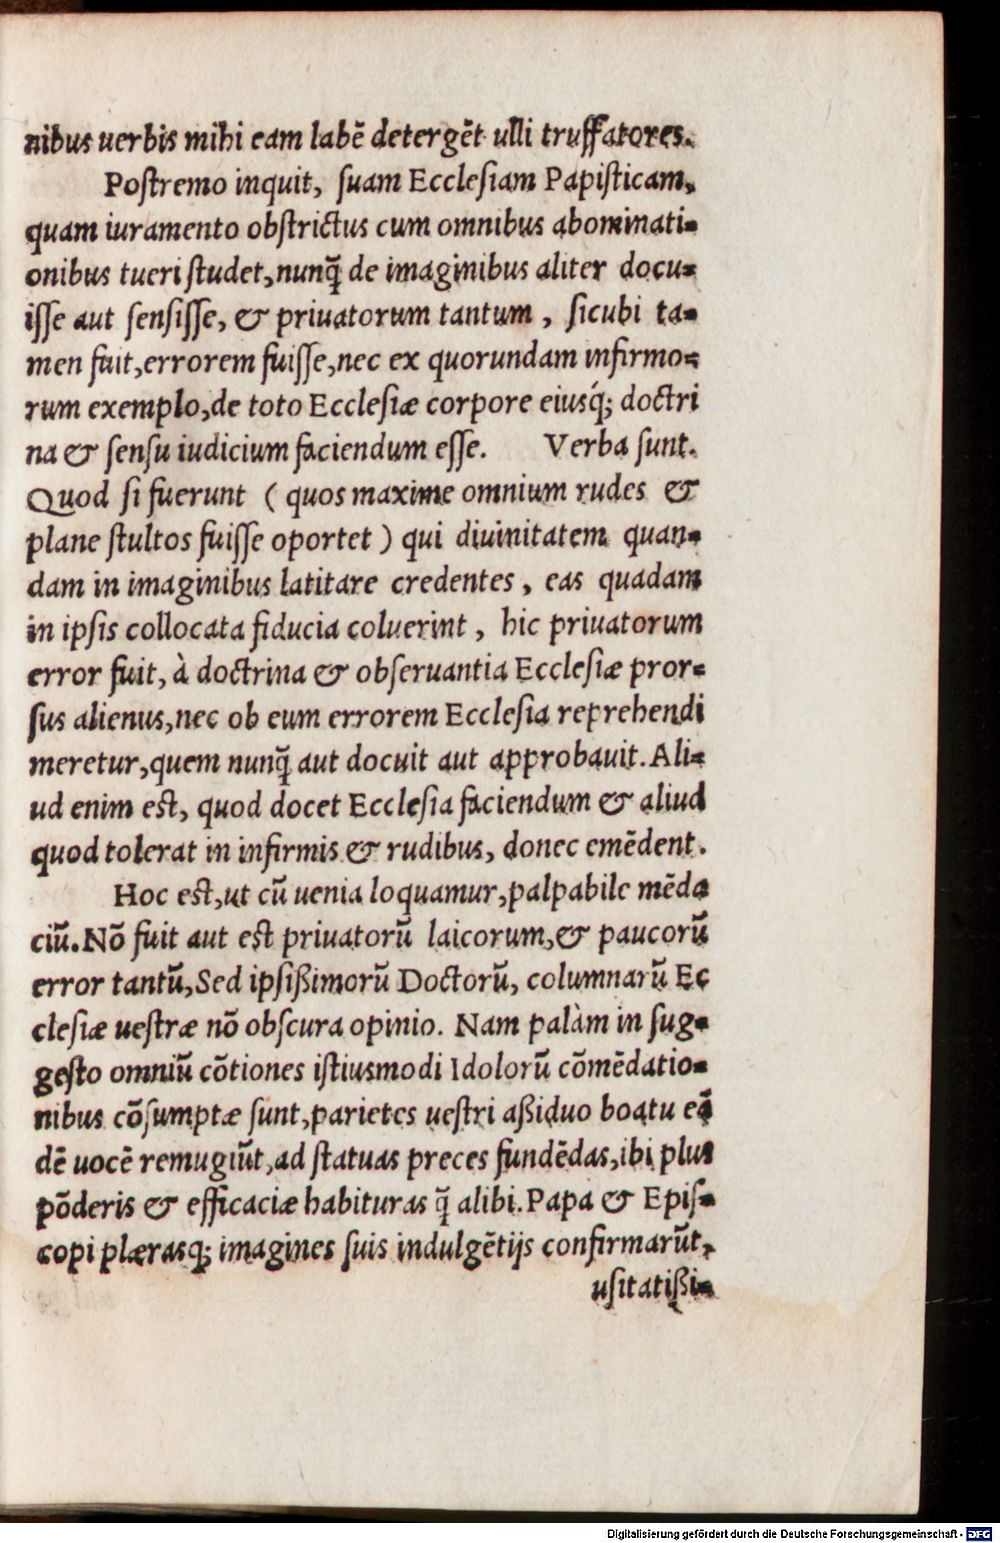 nibus uerbis mihi eam labē detergēt ulli truffatores.
Postremo inquit, suam Ecclesiam Papisticam,
quam iuramento obstrictus cum omnibus abominati-
onibus tueri studet, nunq̄ de imaginibus aliter docu-
isse aut sensisse, & priuatorum tantum, sicubi ta-
men fuit, errorem fuisse, nec ex quorundam infirmo-
rum exemplo, de toto Ecclesiæ corpore eiusq́; doctri
na & sensu iudicium faciendum esse. Verba sunt.
Quod si fuerunt ( quos maxime omnium rudes &
plane stultos fuisse oportet ) qui diuinitatem quan-
dam in imaginibus latitare credentes, eas quadam
in ipsis collocata fiducia coluerint, hic priuatorum
error fuit, à doctrina & obseruantia Ecclesiæ pror-
sus alienus, nec ob eum errorem Ecclesia reprehendi
meretur, quem nunq̄ aut docuit aut approbauit. Ali-
ud enim est, quod docet Ecclesia faciendum & aliud
quod tolerat in infirmis & rudibus, donec emēdent.
Hoc est, ut cū uenia loquamur, palpabile mēda
ciū. Nō fuit aut est priuatorū laicorum, & paucorū
error tantū, Sed ipsißimorū Doctorū, columnarū Ec
clesiæ uestræ nō obscura opinio. Nam palàm in sug-
gesto omniū cōtiones istiusmodi Idolorū cōmēdatio-
nibus cōsumptæ sunt, parietes uestri aßiduo boatu eā
dē uocē remugiūt, ad statuas preces fundēdas, ibi plus
pōderis & efficaciæ habituras q̄ alibi. Papa & Epis-
copi plærasq; imagines suis indulgētijs confirmarūt,
usitatißi-
Digitalisierung gefördert durch die Deutsche Forschungsgemeinschaft - DFG